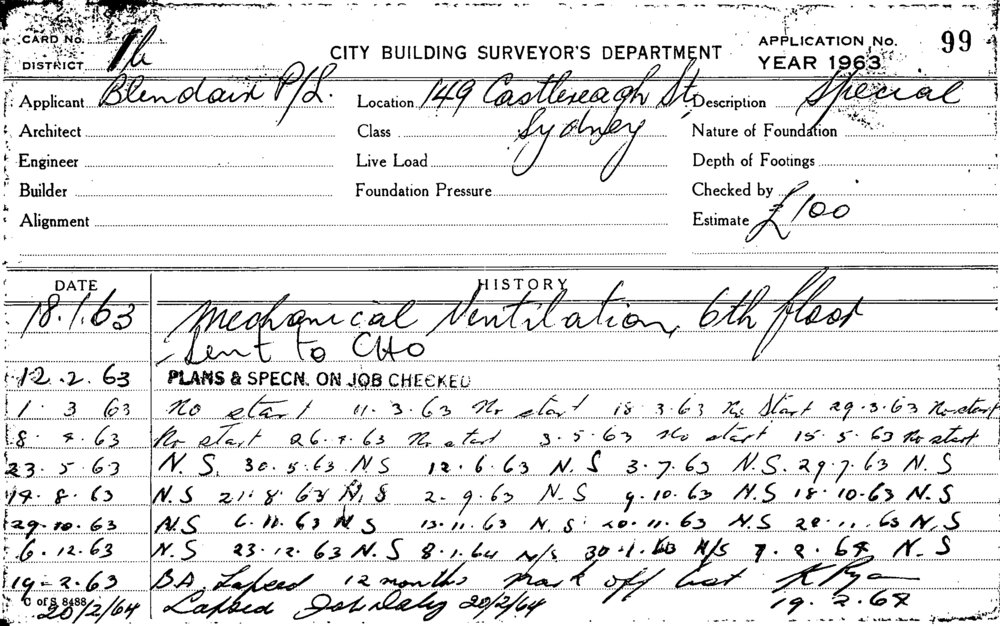 CARD No.
DISTRICT
CITY BUILDING SURVEYOR'S DEPARTMENT
APPLICATION No. 99
YEAR 1963
Applicant Blendair P/L. Location 149 Castlereagh St, Description Special
Architect Class Sydney Nature of Foundation
Engineer Live Load Depth of Footings
Builder Foundation Pressure Checked by
Alignment Estimate £100
DATE HISTORY
18.1.63 Mechanical Ventilation, 6th floor
Sent to CHO
12.2.63 PLANS & SPECN. ON JOB CHECKED
1.3.63 No start 11.3.63 No start 18.3.63 No Start 29.3.63 No start
8.4.63 No start 26.4.63 No start 3.5.63 No start 15.5.63 No start
23.5.63 N.S. 30.5.63 N S 12.6.63 N.S 3.7.63 N.S. 29.7.63 N.S
14.8.63 N.S 21.8.63 N.S 2.9.63 N.S 9.10.63 N.S 18.10.63 N.S
29.10.63 N.S 6.11.63 N S 13.11.63 N.S. 20.11.63 N.S 28.11.63 N.S
6.12.63 N.S 23.12.63 N.S 8.1.64 N/S 30.1.63 N/S 7.2.64 N.S
19.2.63 B.A. Lapsed 12 months mark off list K Ryan
19.2.64
C of S 8488
20/2/64 Lapsed Job Daley 20/2/64